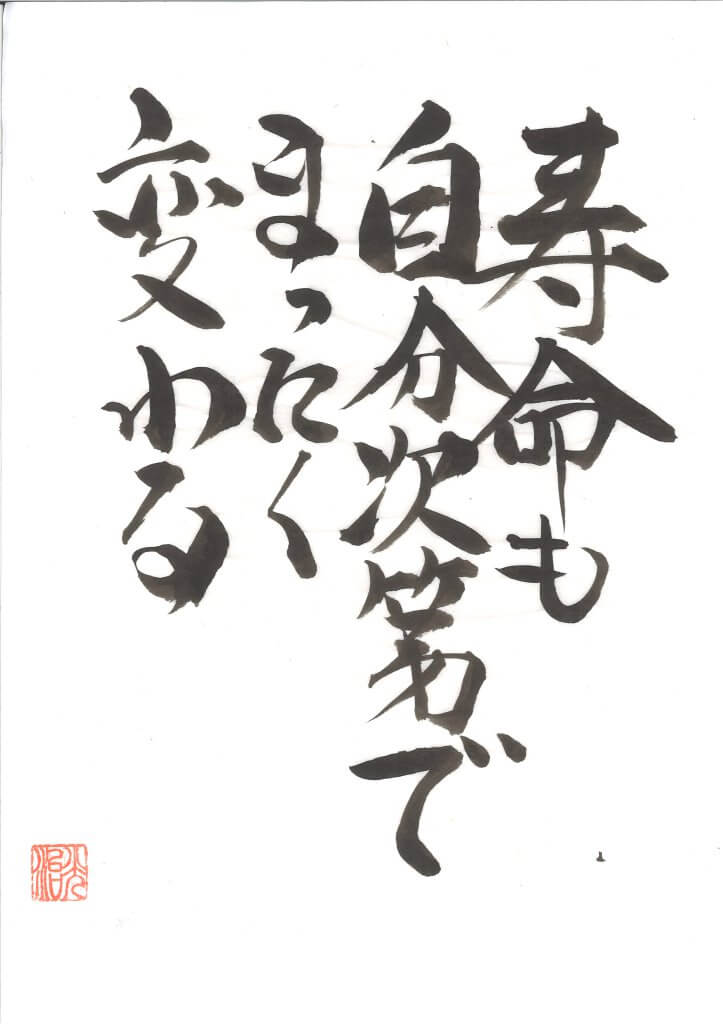 寿命も
自分次第で
まったく
変わる